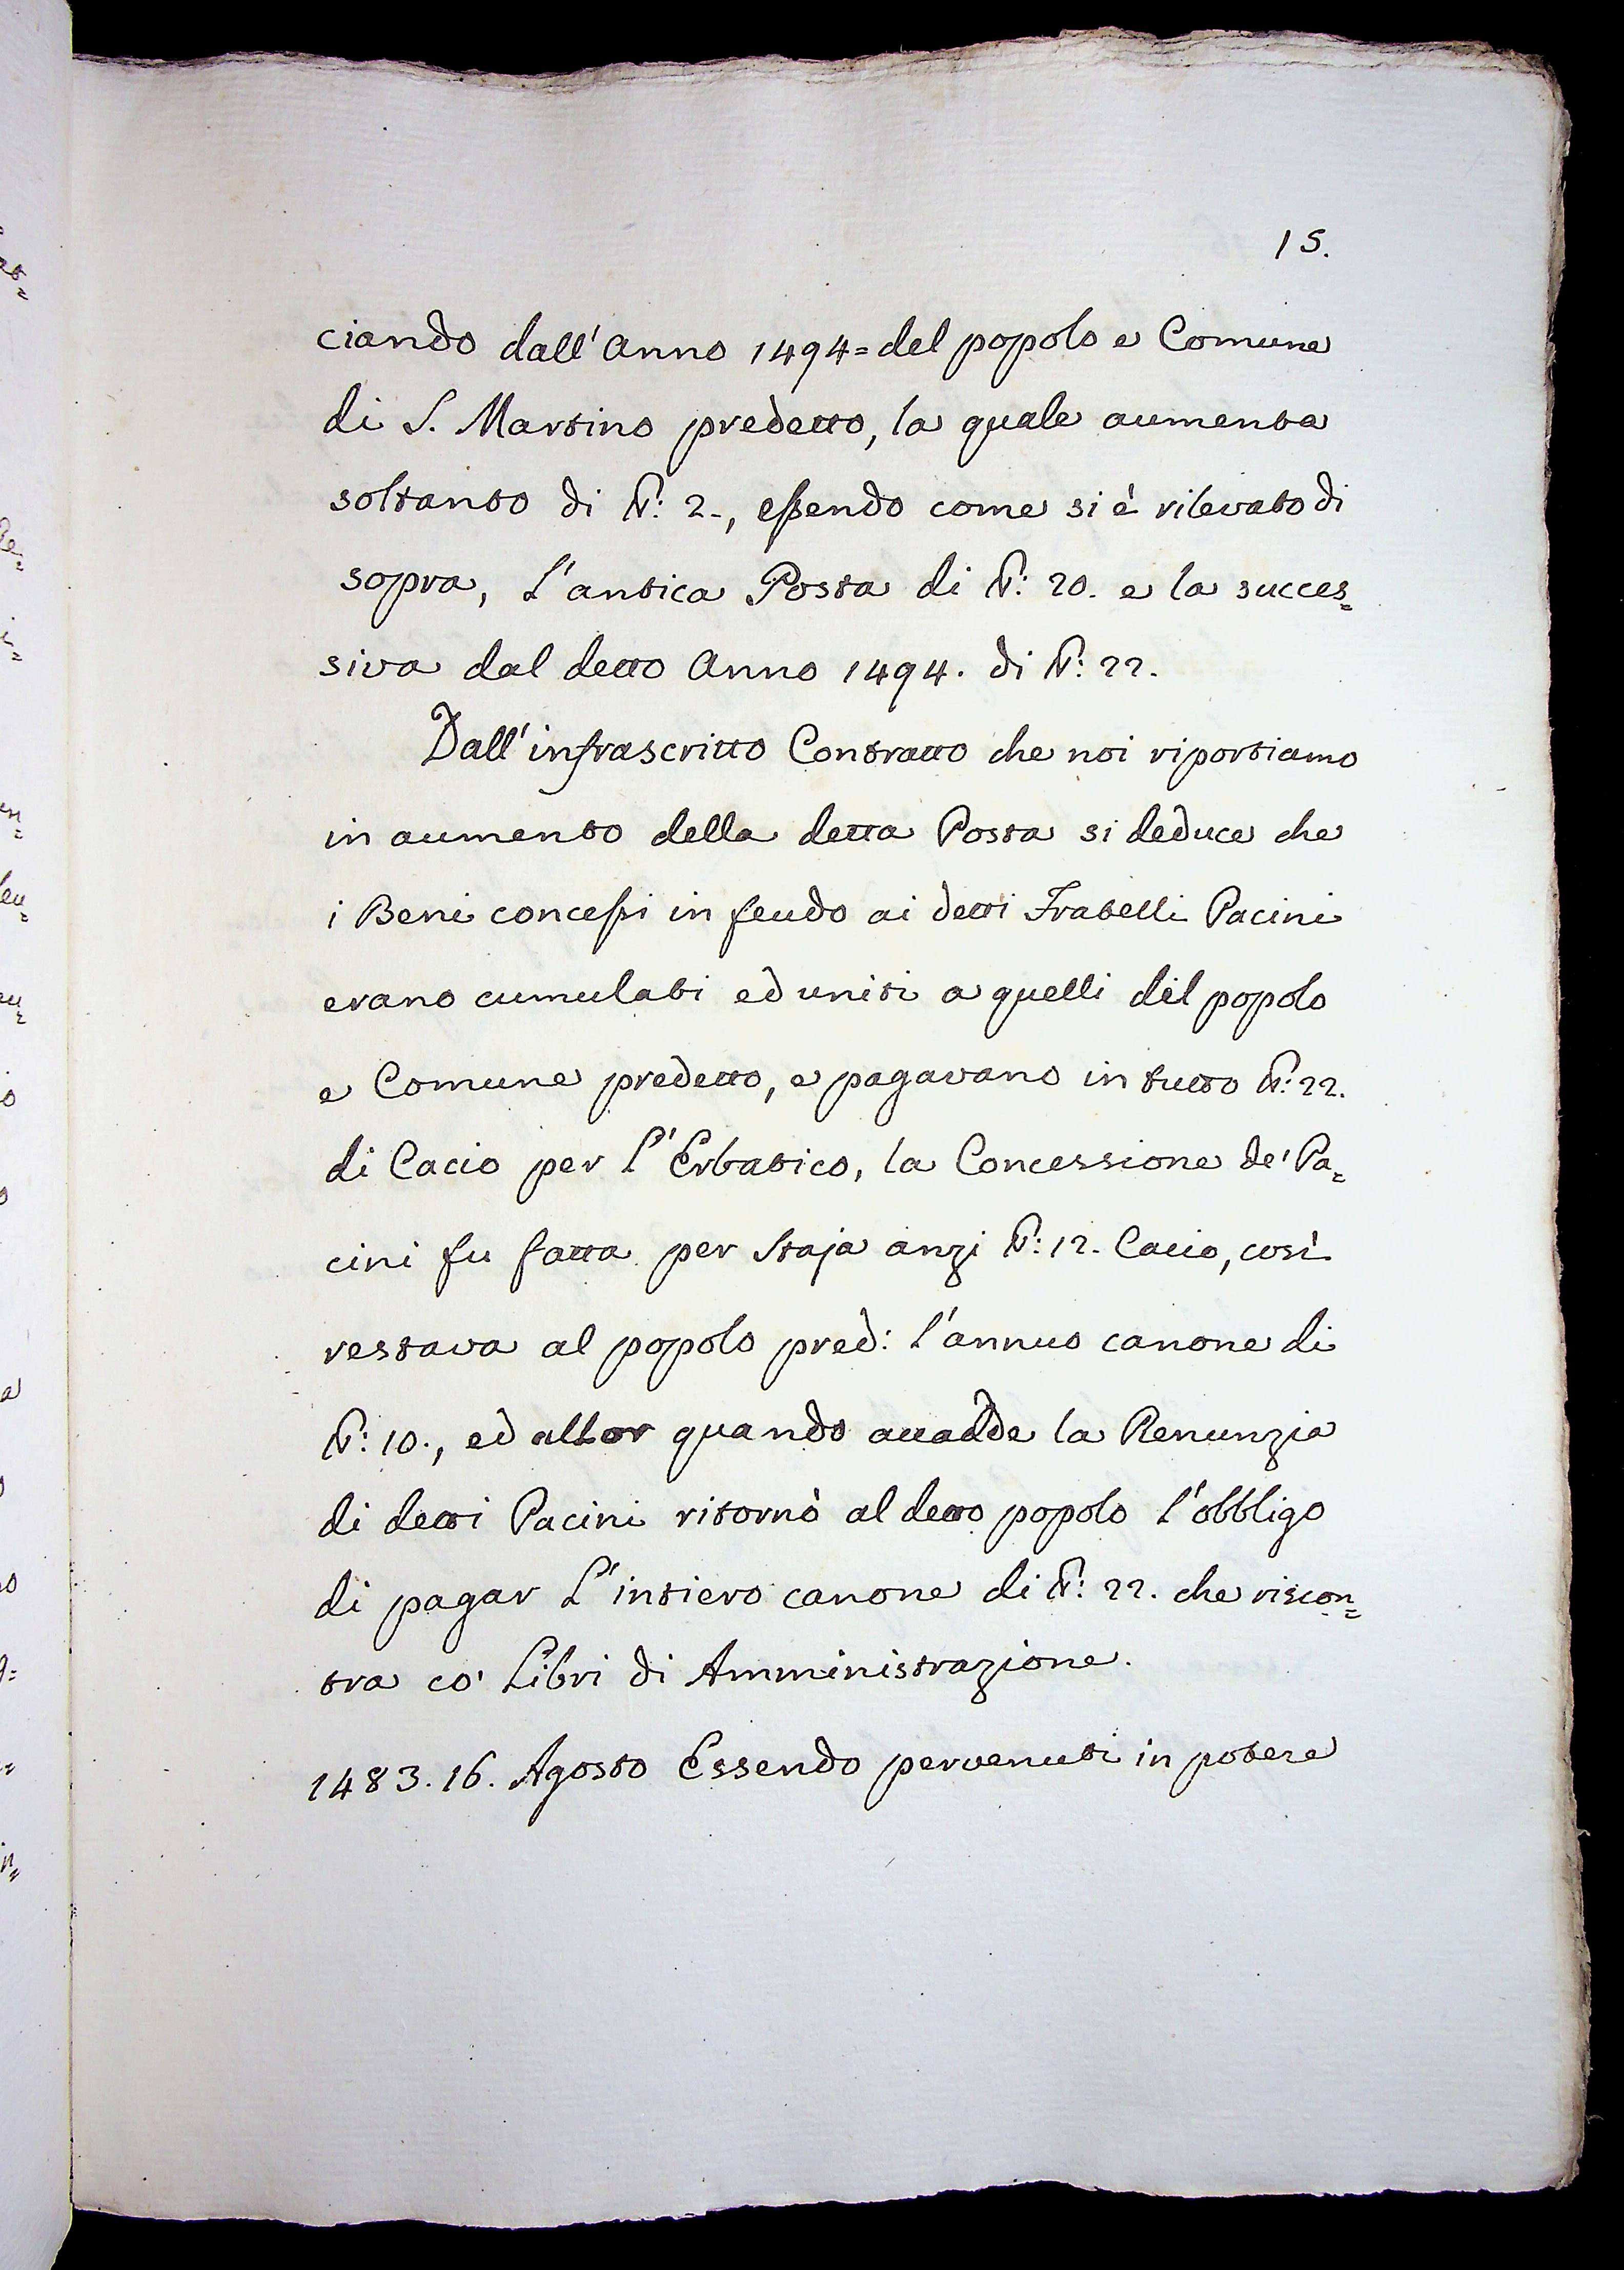 15.
ciando dall'Anno 1494= del popolo e Comune
di S. Martino predetto, la quale aumenta
soltanto di ℔: 2., eſsendo come si è rilevato di
sopra, L'antica Posta di ℔: 20. e la succes=
siva dal detto Anno 1494. di ℔: 22.
Dall'infrascritto Contratto che noi riportiamo
in aumento della detta Posta si deduce che
i Beni conceſsi in feudo ai detti Fratelli Pacini
erano cumulati ed uniti a quelli del popolo
e Comune predetto, e pagavano in tutto ℔: 22.
di Cacio per l'Erbatico, la Concessione de' Pa=
cini fu fatta per Staja anzi ℔: 12. Cacio, così
restava al popolo pred: l'annuo canone di
℔: 10., ed allor quando accadde la Renunzia
di detti Pacini ritornò al detto popolo l'obbligo
di pagar L'intiero canone di ℔: 22. che riscon=
tra co' Libri di Amministrazione.
1483. 16. Agosto Essendo pervenuti in potere